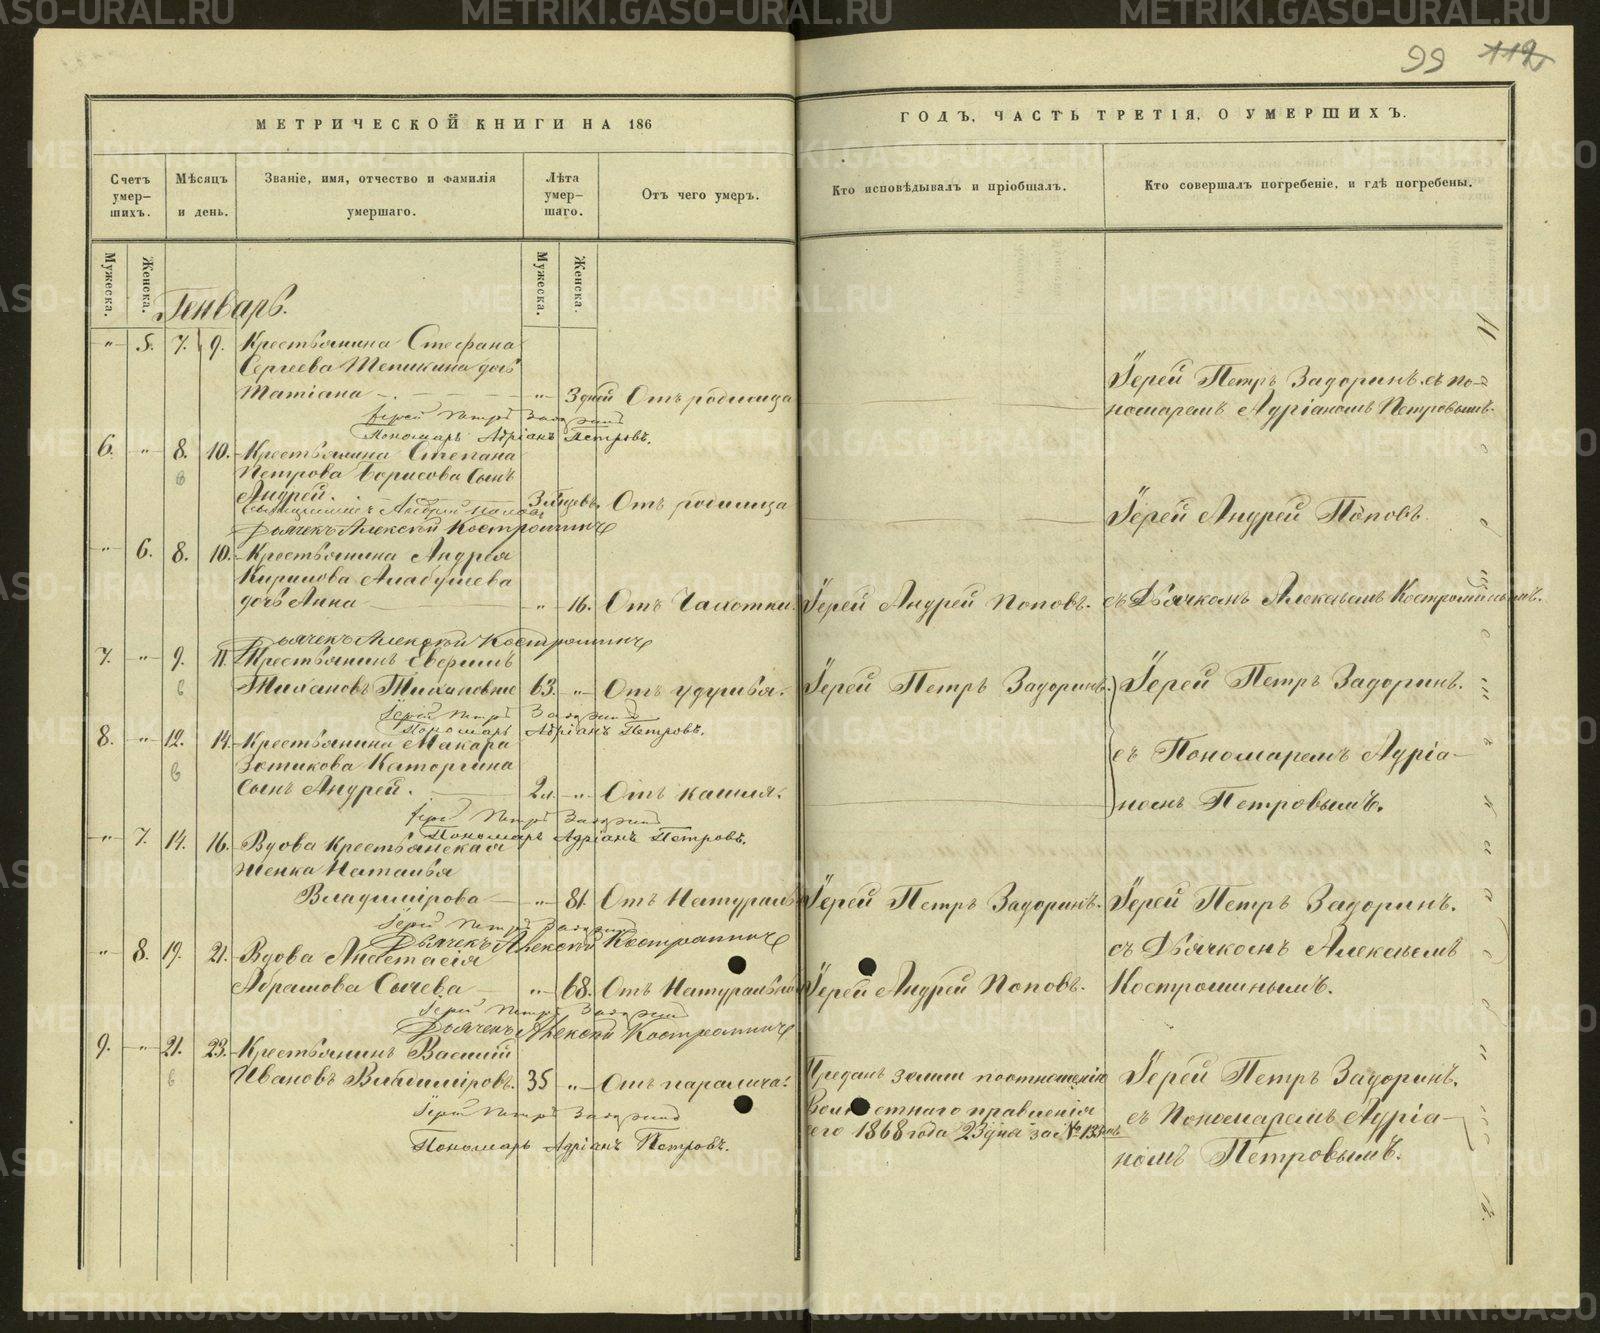 99 112
МЕТРИЧЕСКОЙ КНИГИ НА 186
ГОДЪ, ЧАСТЬ ТРЕТІЯ, О УМЕРШИХЪ.
Счетъ умер-
шихъ.
Мѣсяцъ
и день.
Званіе, имя, отчество и фамилія
умершаго.
Лѣта
умер-
шаго.
Отъ чего умеръ.
Кто исповѣдывалъ и пріобщалъ.
Кто совершалъ погребеніе, и гдѣ погребены.
Мужеска.
Женска.
Мужеска.
Женска.
Генварь.
„ 5. 7. 9. Крестьянина Стефана
Сергеева Тепикина дочь
Татіана „ 3 дней Отъ родимца
Іерей Петръ Задоринъ съ по-
номаремъ Адріаномъ Петровымъ.
Іерей Петръ Задоринъ
Пономарь Адріанъ Петровъ.
6. „ 8. 10. Крестьянина Степана
Петрова Борисова сынъ
Андрей. 3 мѣсяцевъ. Отъ родимца
Іерей Андрей Поповъ.
Дьячекъ Алексѣй Костроминъ
„ 6. 8. 10. Крестьянина Андрея
Кирилова Алабушева
дочь Анна „ 16. Отъ Чахотки. Іерей Андрей Поповъ. съ Дьячкомъ Алексѣемъ Костроминымъ.
Дьячекъ Алексѣй Костроминъ
7. „ 9. 11. Крестьянинъ
Тихановъ 63. „ Отъ удушья. Іерей Петръ Задоринъ. Іерей Петръ Задоринъ.
Іерей Петръ Задоринъ
Пономарь Адріанъ Петровъ.
8. „ 12. 14. Крестьянина Макара
Зотикова Каторгина
сынъ Андрей. 2 л. „ Отъ кашля.
съ Пономаремъ Адріа-
номъ Петровымъ.
Іерей Петръ Задоринъ
Пономарь Адріанъ Петровъ.
„ 7. 14. 16. Вдова Крестьянская
женка Наталья
Владимірова „ 81. Отъ Натураль Іерей Петръ Задоринъ. Іерей Петръ Задоринъ.
Іерей Петръ Задоринъ
Дьячекъ Алексѣй Костроминъ
съ Дьячкомъ Алексѣемъ
„ 8. 19. 21. Вдова Анастасія
Абрамова Сычева „ 68. Отъ Натуральной Іерей Андрей Поповъ. Костроминымъ.
Іерей Петръ Задоринъ
Дьячекъ Алексѣй Костроминъ
9. „ 21. 23. Крестьянинъ Василій
Ивановъ Владиміровъ. 35 „ Отъ паралича. Преданъ земли по отношенію
Волостнаго правленія
сего 1868 года 23 дня за №
Іерей Петръ Задоринъ.
съ Пономаремъ Адріа-
номъ Петровымъ.
Іерей Петръ Задоринъ
Пономарь Адріанъ Петровъ.
METRIKI.GASO-URAL.RU